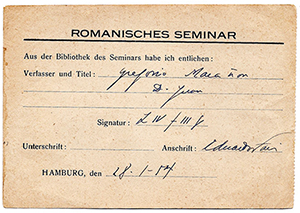 ROMANISCHES SEMINAR
Aus der Bibliothek des Seminars habe ich entliehen:
Verfasser und Titel: Gregorio Marañon
D. Juan
Signatur: L IV
Unterschrift: Anschrift: Eduardo
HAMBURG, den 28. 1 - 54